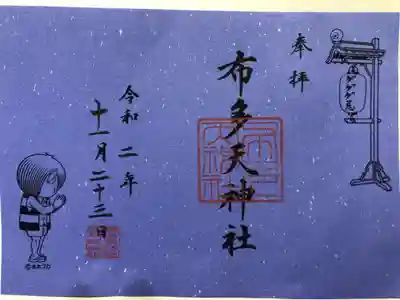 奉拝
布多天神社
令和二年
十一月二十三日
ゲゲゲの鬼太郎
©水木プロ